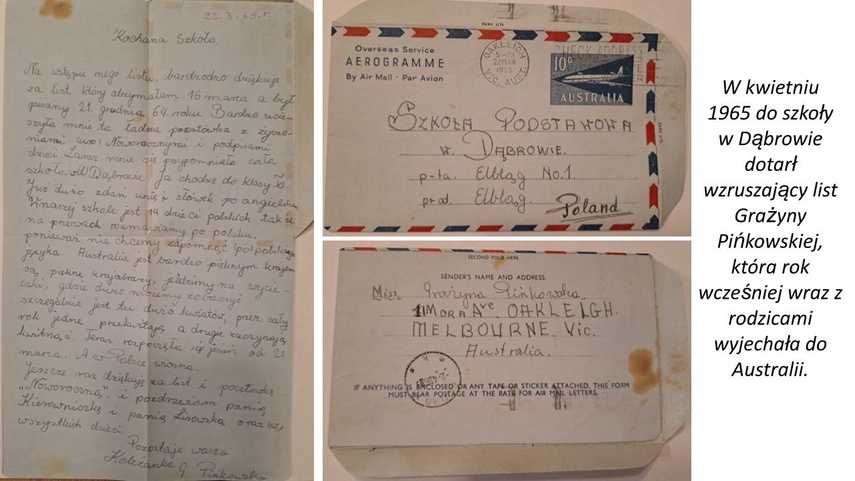 22.3-65.r.
Kochana Szkoło.
Na wstępie mego listu, bardzo dziękuję
za list który otrzymałam 16 marca a był
pisany 21. grudnia 64 roku. Bardzo ucie-
szyła mnie ta ładna pocztówka z życze-
niami Noworocznymi i podpisami
dzieci. Zaraz mnie się przypomniała cała
szkoła w Dąbrowie. Ja chodzę do klasy
Już dużo zdań umię i słówek po angielsku.
W naszej szkole jest 14 dzieci polskich tak że
na przerwach rozmawiamy po polsku,
ponieważ nie chcemy zapomnieć polskiego
języka. Australia jest bardzo pięknym krajem
są piękne krajobrazy, jeździmy na wycie-
czki, gdzie dużo możemy zobaczyć
szczególnie jest tu dużo kwiatów, przez cały
rok jedne przekwitają a drugie zaczynają
kwitnąć. Teraz rozpoczęła się jesień od 21
marca. A w Polsce wiosna.
Jeszcze raz dziękuję za list i pocztówkę
"Noworoczną" i pozdrawiam panią
Kierowniczkę i panią Lisowską oraz
wszystkich dzieci.
Pozostaje wasza
Koleżanka G. Pińkowska
Overseas Service
AEROGRAMME
By Air Mail · Par Avion
OAKLEIGH
22MAR
1965
VIC. AUST.
CHECK ADDRESS
10D
AUSTRALIA
SZKOŁA PODSTAWOWA
w. DĄBROWIE.
p-ta. Elbląg No.1.
Elbląg.
Poland
SECOND FOLD HERE
SENDER'S NAME AND ADDRESS
Miss Grażyna Pińkowska
1 MORA Ave OAKLEIGH.
MELBOURNE. Vic.
Australia.
IF ANYTHING IS ENCLOSED OR ANY TAPE OR STICKER ATTACHED, THIS FORM
MUST BEAR POSTAGE AT THE RATE FOR AIR MAIL LETTERS.
W kwietniu
1965 do szkoły
w Dąbrowie
dotarł
wzruszający list
Grażyny
Pińkowskiej,
która rok
wcześniej wraz z
rodzicami
wyjechała do
Australii.